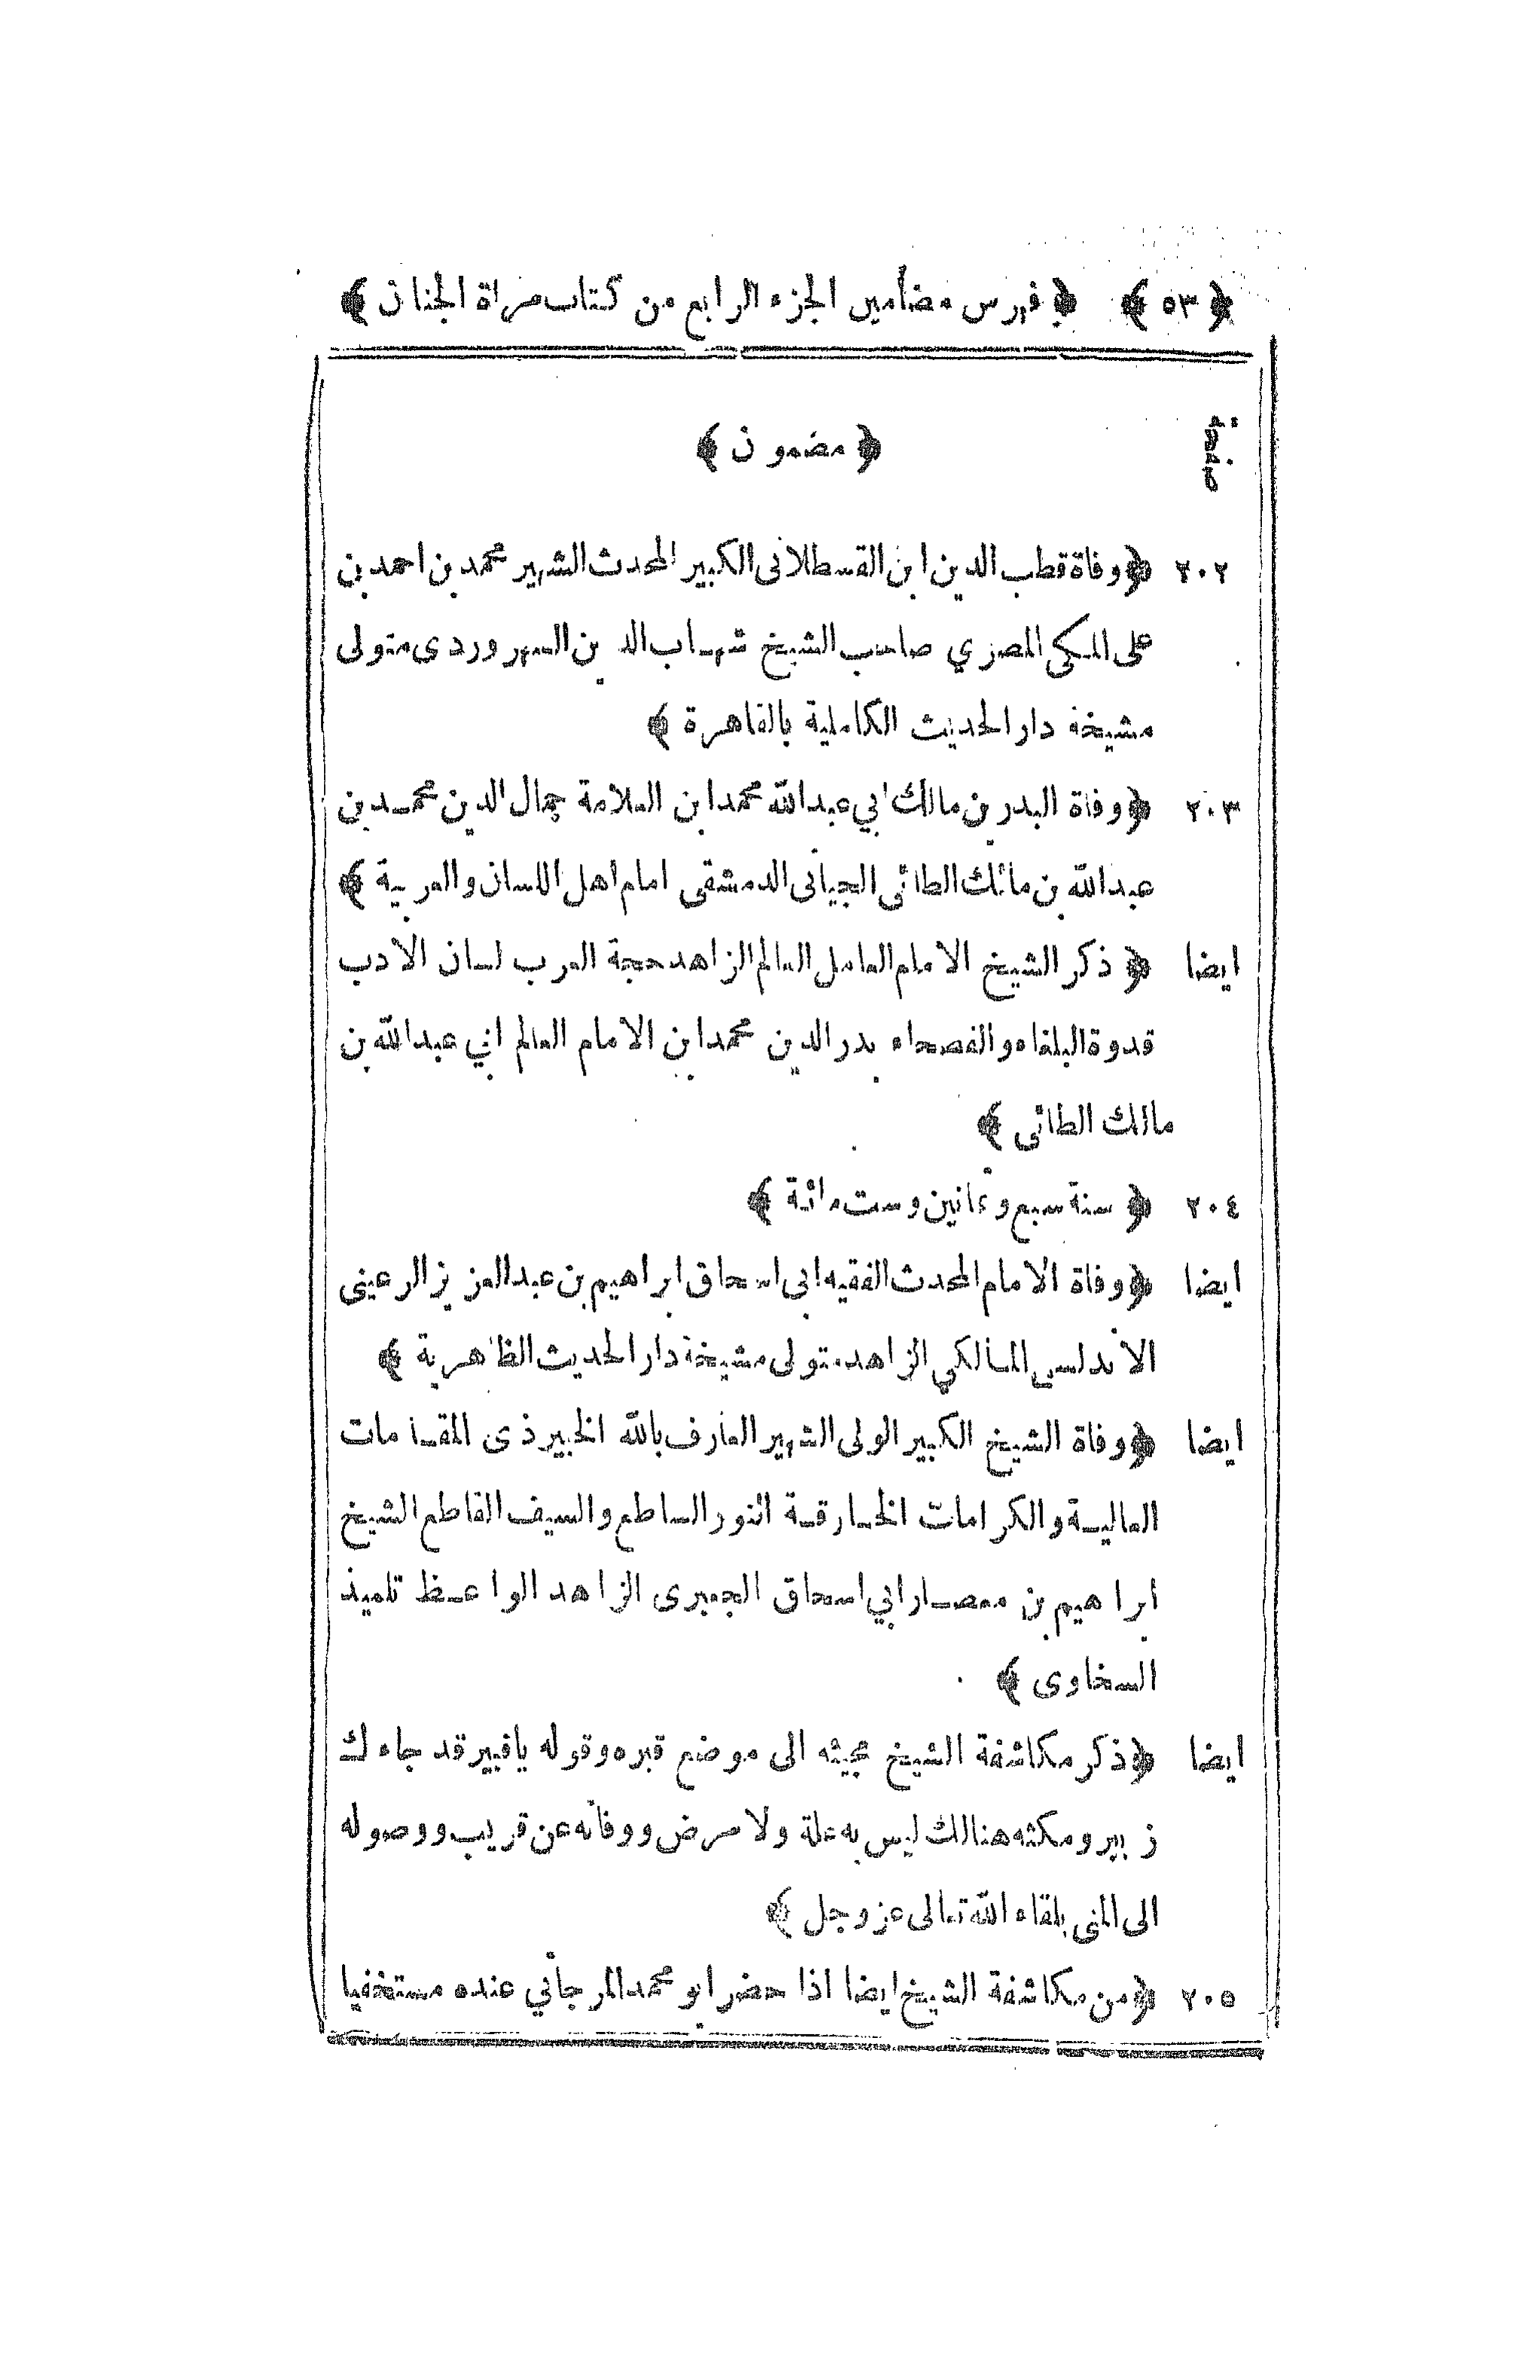 ﴿ ٥٣ ﴾ ﴿ فهرس مضامين الجزء الرابع من كتاب مرآة الجنان ﴾
صفحة
﴿ مضمون ﴾
٢٠٢ ﴿ وفاة قطب الدين ابن القسطلانى الكبير المحدث الشهير محمد بن احمد بن
على المكي المصري صاحب الشيخ شهاب الدين السهروردى متولى
مشيخة دار الحديث الكاملية بالقاهرة ﴾
٢٠٣ ﴿ وفاة البدر بن مالك ابي عبد الله محمد ابن العلامة جمال الدين محمد بن
عبد الله بن مالك الطائى الجيانى الدمشقى امام اهل اللسان والعربية ﴾
ايضا ﴿ ذكر الشيخ الامام العامل العالم الزاهد حجة العرب لسان الادب
قدوة البلغاء والفصحاء بدر الدين محمد ابن الامام العالم ابي عبد الله بن
مالك الطائى ﴾
٢٠٤ ﴿ سنة سبع وثمانين وست مائة ﴾
ايضا ﴿ وفاة الامام المحدث الفقيه ابى اسحاق ابراهيم بن عبد العزيز الرعينى
الاندلسى المالكي الزاهد متولى مشيخة دار الحديث الظاهرية ﴾
ايضا ﴿ وفاة الشيخ الكبير الولى الشهير العارف بالله الخبير ذى المقامات
العالية والكرامات الخارقة النور الساطع والسيف القاطع الشيخ
ابراهيم بن معصار ابي اسحاق الجعبرى الزاهد الواعظ تلميذ
السخاوى ﴾
ايضا ﴿ ذكر مكاشفة الشيخ بمجيئه الى موضع قبره وقوله ياقبير قد جاءك
زبير ومكثه هنالك ليس به علة ولا مرض ووفاته عن قريب ووصوله
الى المنى بلقاء الله تعالى عز وجل ﴾
٢٠٥ ﴿ من مكاشفة الشيخ ايضا اذا حضر ابو محمد المرجاني عنده مستخفيا